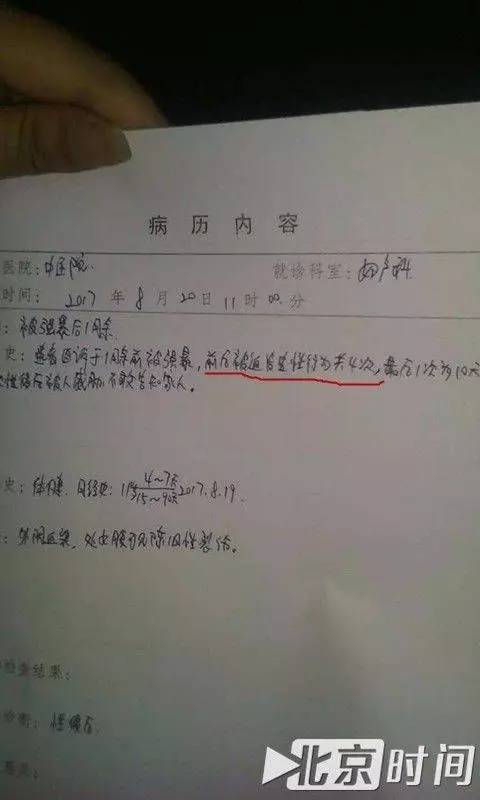 病历内容
医院：中医院 就诊科室：妇产科
时间：2017年8月20日11时00分
：被强暴后1周余
史：患者自诉于1周余前被强暴，前后被迫发生性行为共4次，最后1次为10天
性侵后被人威胁不敢告知家人。
史：体健，月经史：4～7天 15～90天 2017.8.19.
：外阴已染，处女膜可见陈旧性裂伤。
检查结果：
诊断：性侵后
北京时间